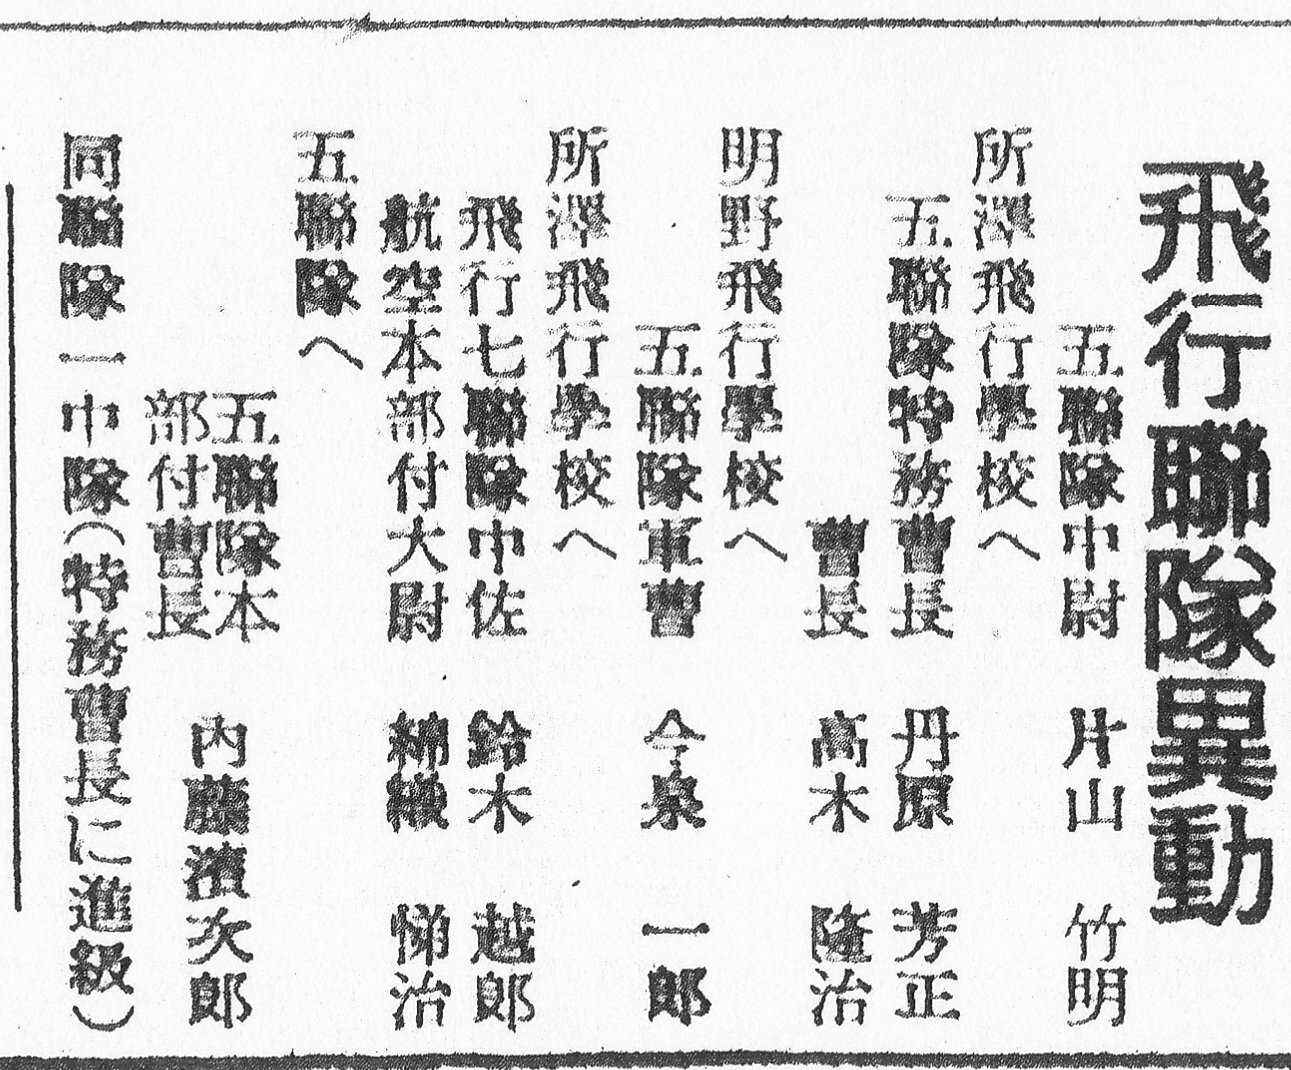 飛行聯隊異動
五聯隊中尉 片山 竹明
所澤飛行學校へ
五聯隊特務曹長 丹原 芳正
曹長 高木 隆治
明野飛行學校へ
五聯隊軍曹 今泉 一郎
所澤飛行學校へ
飛行七聯隊中佐 鈴木 越郎
航空本部付大尉 綿纐 悌治
五聯隊へ
五聯隊本
部付曹長 内藤濱次郎
同聯隊一中隊(特務曹長に進級)